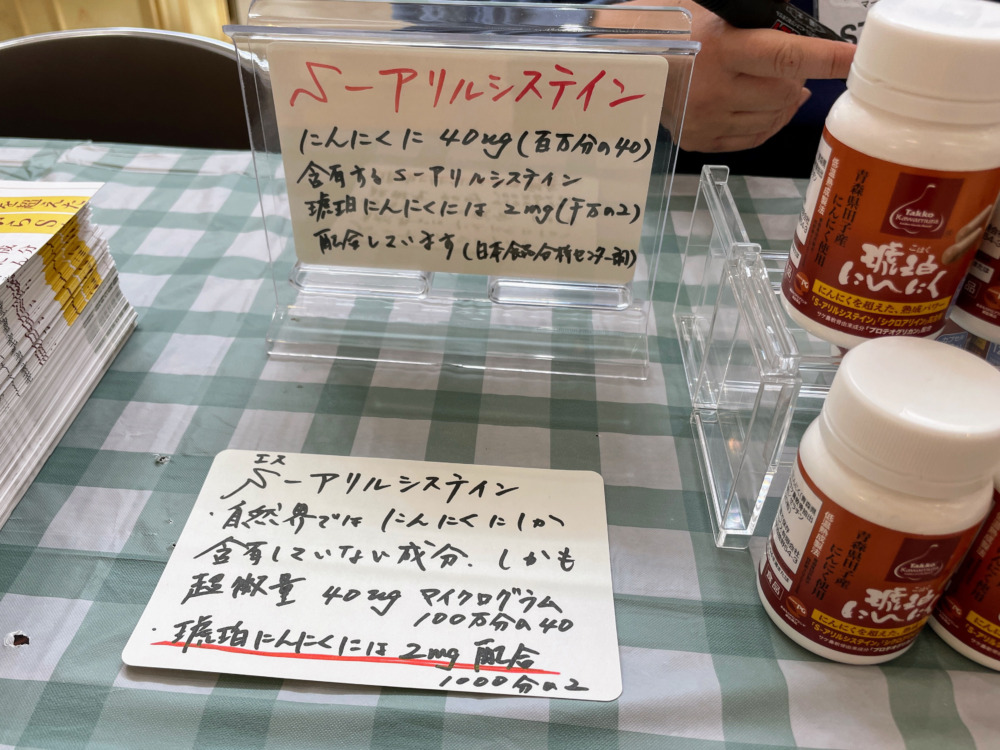 S-アリルシステイン
にんにくに 40μg(百万分の40)
含有するS-アリルシステイン
琥珀にんにくには 2mg(千分の2)
配合しています(日本食品分析センター調)
エス
S-アリルシステイン
・自然界では にんにくにしか
含有していない成分、しかも
超微量 40μg マイクログラム
100万分の40
・琥珀にんにくには 2mg 配合
1000分の2
低温熟成製法
青森県田子産
にんにく使用
Takko
Kawamura
こはく
琥珀
にんにく
にんにくを超えた、熟成パワー
「S-アリルシステイン」「シクロアリイン」
サケ鼻軟骨由来成分「プロテオグリカン」配合
低温熟成製法
青森県田子産
にんにく使用
Takko
Kawamura
琥珀
にんにく
にんにくを超えた、熟
「S-アリルシステイン」「シクロア
サケ鼻軟骨由来成分「プロテオ